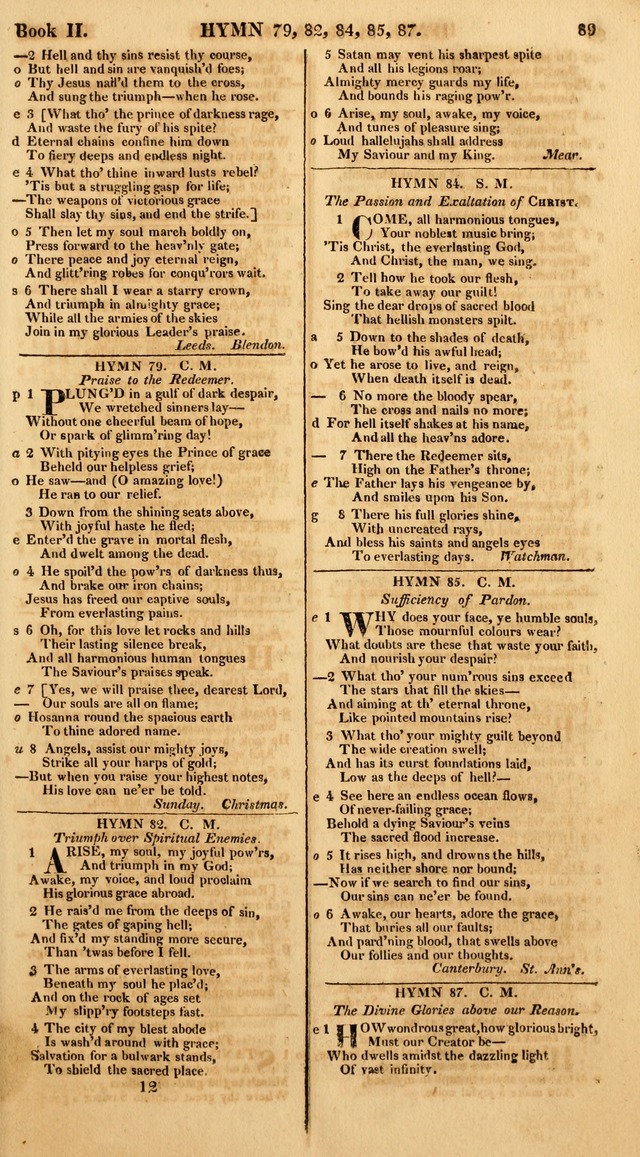 Book II. HYMN 79, 82, 84, 85, 87. 89
—2 Hell and thy sins resist thy course,
o But hell and sin are vanquish'd foes;
o Thy Jesus nail'd them to the cross,
And sung the triumph—when he rose.
e 3 [What tho' the prince of darkness rage,
And waste the fury of his spite?
d Eternal chains confine him down
To fiery deeps and endless night.
e 4 What tho' thine inward lusts rebel?
'Tis but a struggling gasp for life;
—The weapons of victorious grace
Shall slay thy sins, and end the strife.]
o 5 Then let my soul march boldly on,
Press forward to the heav'nly gate;
o There peace and joy eternal reign,
And glitt'ring robes for conqu'rors wait.
s 6 There shall I wear a starry crown,
And triumph in almighty grace;
While all the armies of the skies
Join in my glorious Leader's praise.
Leeds. Blendon.
HYMN 79. C. M.
Praise to the Redeemer.
p 1 PLUNG'D in a gulf of dark despair,
We wretched sinners lay—
Without one cheerful beam of hope,
Or spark of glimm'ring day!
a 2 With pitying eyes the Prince of grace
Beheld our helpless grief;
o He saw—and (O amazing love!)
He ran to our relief.
3 Down from the shining seats above,
With joyful haste he fled;
e Enter'd the grave in mortal flesh,
And dwelt among the dead.
o 4 He spoil'd the pow'rs of darkness thus,
And brake our iron chains;
Jesus has freed our captive souls,
From everlasting pains.
s 6 Oh, for this love let rocks and hills
Their lasting silence break,
And all harmonious human tongues
The Saviour's praises speak.
e 7 [Yes, we will praise thee, dearest Lord,
— Our souls are all on flame;
o Hosanna round the spacious earth
To thine adored name.
u 8 Angels, assist our mighty joys,
Strike all your harps of gold;
—But when you raise your highest notes,
His love can ne'er be told.
Sunday. Christmas.
HYMN 82. C. M.
Triumph over Spiritual Enemies.
1 ARISE, my soul, my joyful pow'rs,
And triumph in my God;
Awake, my voice, and loud proclaim
His glorious grace abroad.
2 He rais'd me from the deeps of sin,
The gates of gaping hell;
And fix'd my standing more secure,
Than 'twas before I fell.
3 The arms of everlasting love,
Beneath my soul he plac'd;
And on the rock of ages set
My slipp'ry footsteps fast.
4 The city of my blest abode
Is wash'd around with grace;
Salvation for a bulwark stands,
To shield the sacred place.
12
5 Satan may vent his sharpest spite
And all his legions roar;
Almighty mercy guards my life,
And bounds his raging pow'r.
o 6 Arise, my soul, awake, my voice,
And tunes of pleasure sing;
o Loud hallelujahs shall address
My Saviour and my King. Mear.
HYMN 84. S. M.
The Passion and Exaltation of CHRIST.
1 COME, all harmonious tongues,
Your noblest music bring;
'Tis Christ, the everlasting God,
And Christ, the man, we sing.
2 Tell how he took our flesh,
To take away our guilt!
Sing the dear drops of sacred blood
That hellish monsters spilt.
a 5 Down to the shades of death,
He bow'd his awful head;
o Yet he arose to live, and reign,
When death itself is dead.
— 6 No more the bloody spear,
The cross and nails no more;
d For hell itself shakes at his name,
And all the heav'ns adore.
— 7 There the Redeemer sits,
High on the Father's throne;
e The Father lays his vengeance by,
And smiles upon his Son.
g 8 There his full glories shine,
With uncreated rays,
And bless his saints and angels eyes
To everlasting days. Watchman.
HYMN 85. C. M.
Sufficiency of Pardon.
e 1 WHY does your face, ye humble souls,
Those mournful colours wear?
What doubts are these that waste your faith,
And nourish your despair?
—2 What tho' your num'rous sins exceed
The stars that fill the skies—
And aiming at th' eternal throne,
Like pointed mountains rise?
3 What tho' your mighty guilt beyond
The wide creation swell;
And has its curst foundations laid,
Low as the deeps of hell?—
e 4 See here an endless ocean flows,
Of never-failing grace;
Behold a dying Saviour's veins
The sacred flood increase.
o 5 It rises high, and drowns the hills,
Has neither shore nor bound;
—Now if we search to find our sins,
Our sins can ne'er be found.
o 6 Awake, our hearts, adore the grace,
That buries all our faults;
And pard'ning blood, that swells above
Our follies and our thoughts.
Canterbury. St. Ann's.
HYMN 87. C. M.
The Divine Glories above our Reason.
e 1 HOW wondrous great, how glorious bright,
Must our Creator be—
Who dwells amidst the dazzling light
Of vast infinity.